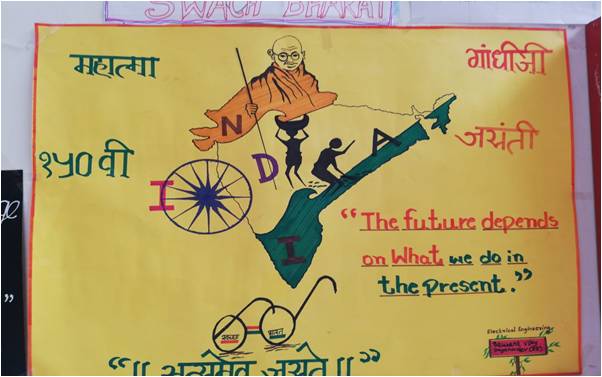 SWACH BHARAT
महात्मा गांधीजी
१५० वी जयंती
I N D I A
“The future depends
on What we do in
the present.”
स्वच्छ भारत
Electrical Engineering
“॥ सत्यमेव जयते ॥”